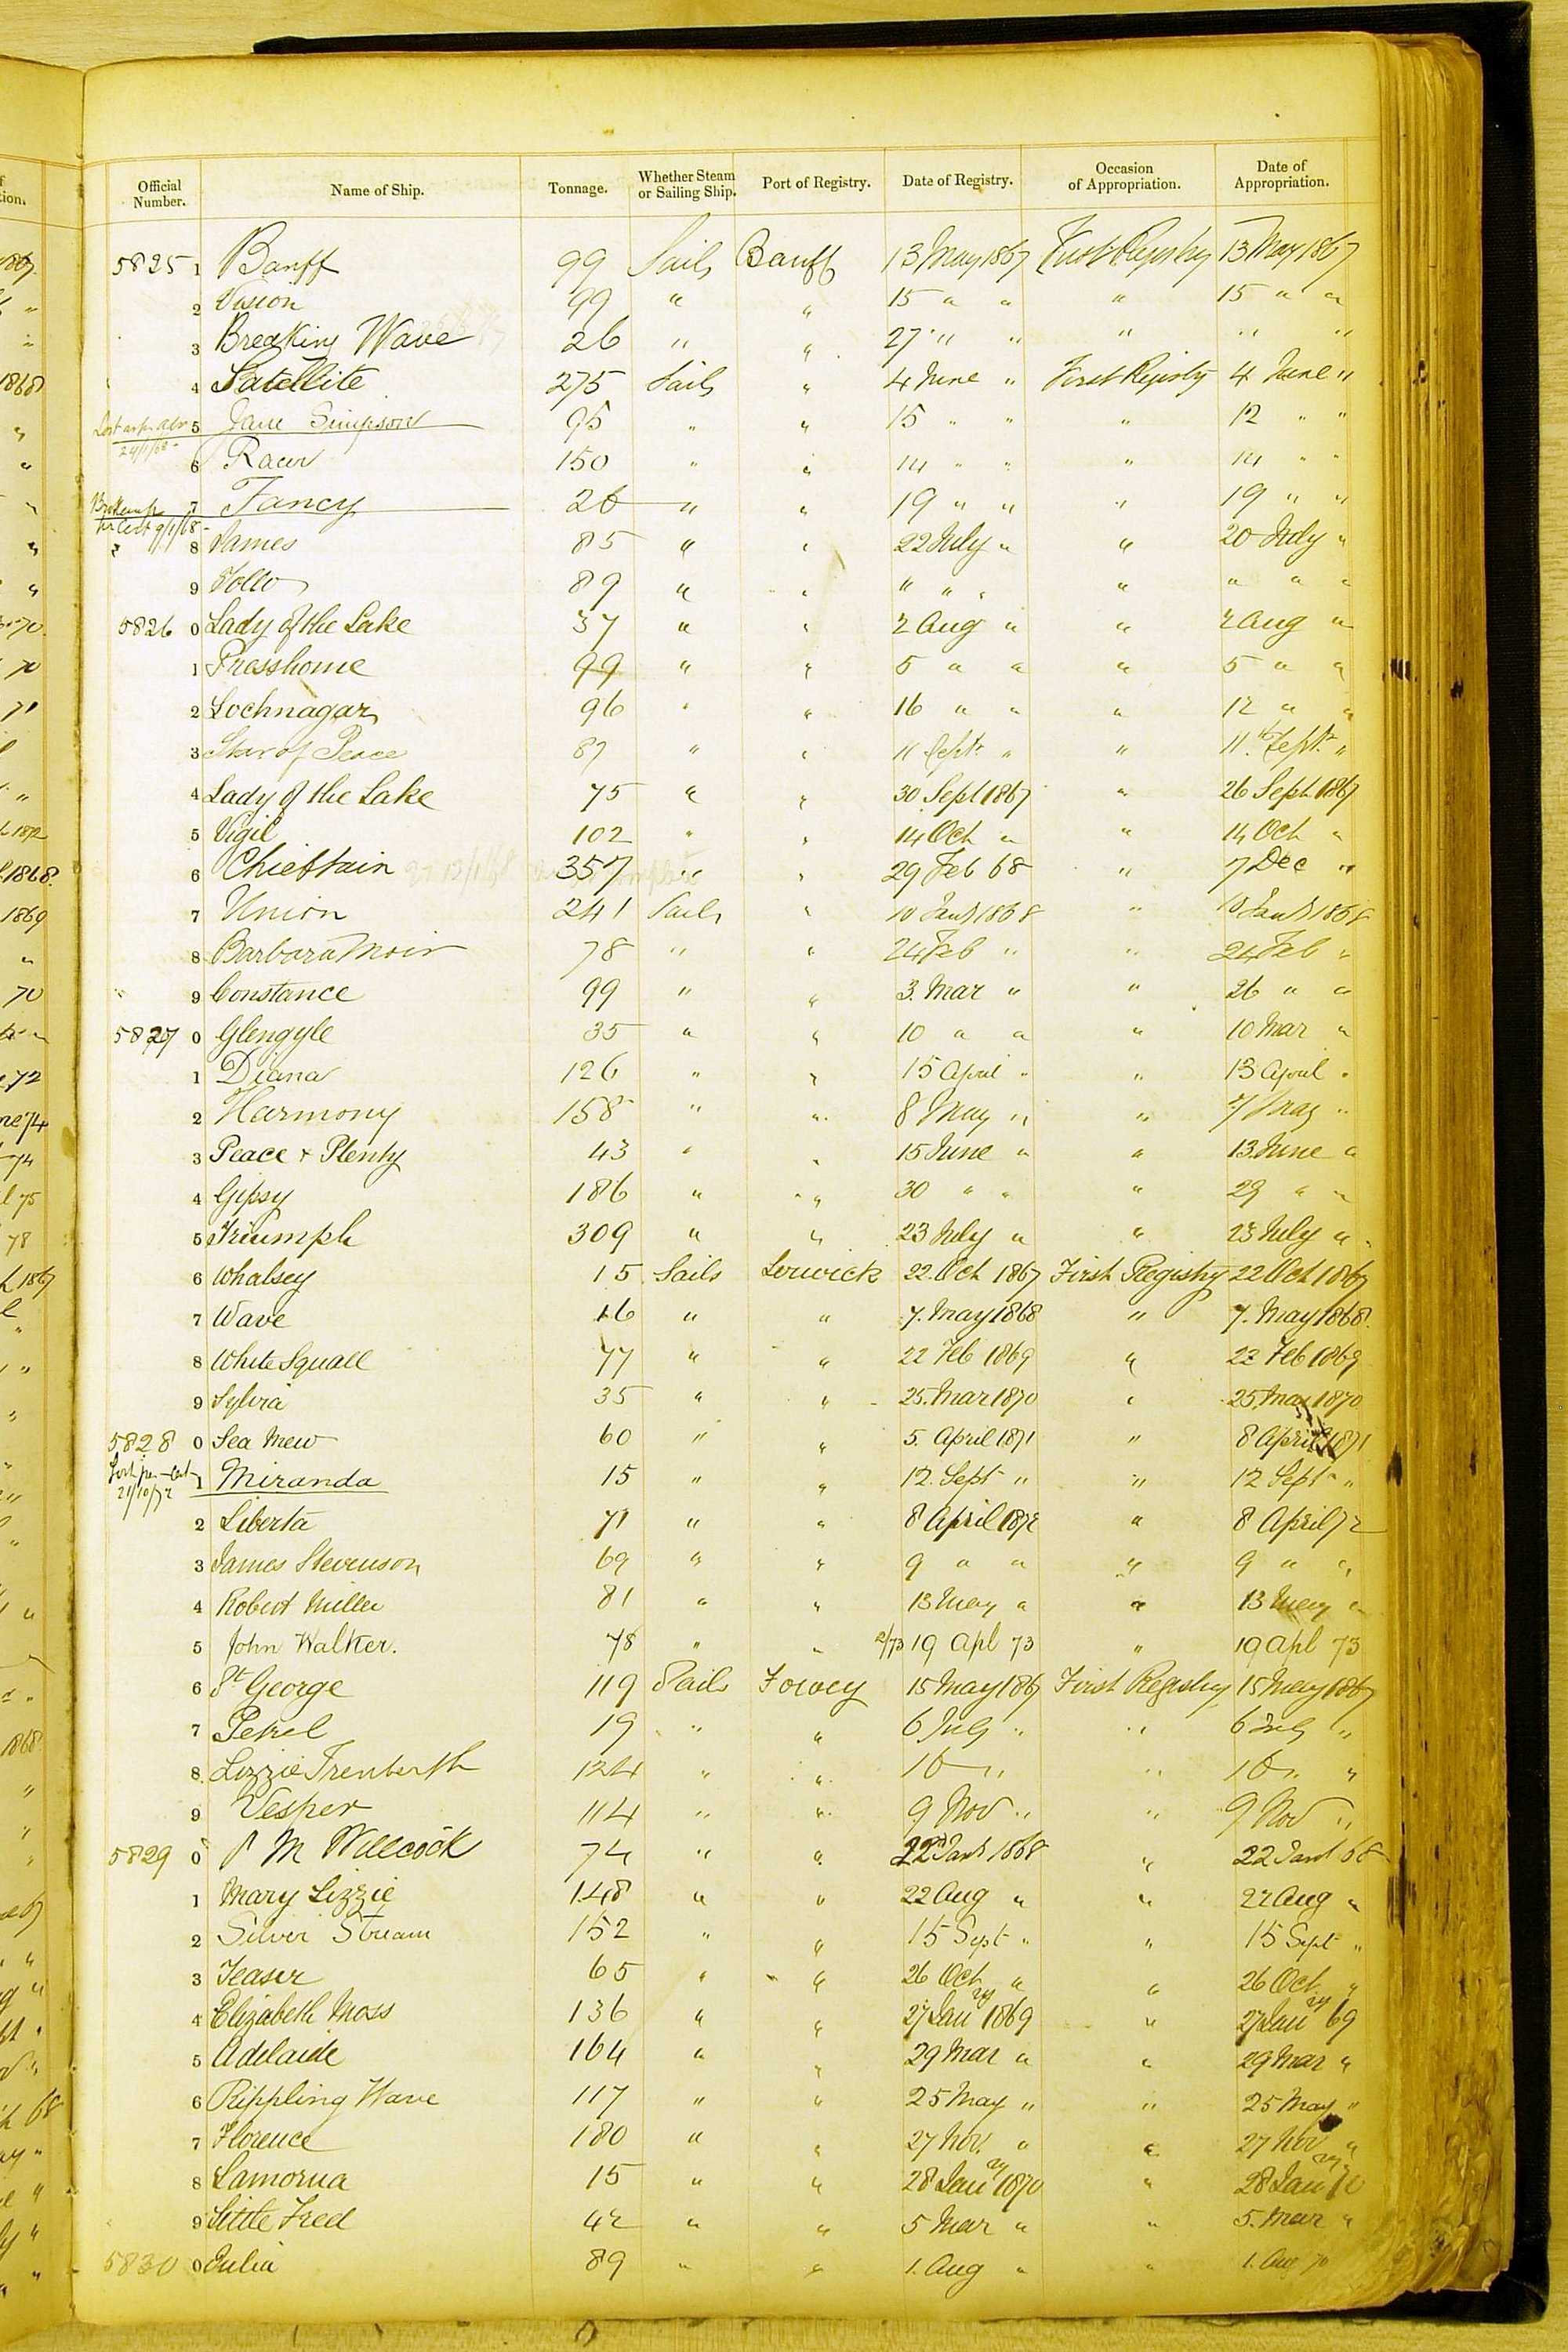 Official Number. Name of Ship. Tonnage. Whether Steam or Sailing Ship. Port of Registry. Date of Registry. Occasion of Appropriation. Date of Appropriation.
5825 1 Banff 99 Sails Banff 13 May 1867 First Registry 13 May 1867
2 Vision 99 " " 15 " " " 15 " "
3 Breaking Wave 26 " " 27 " " " " "
4 Satellite 275 Sails " 4 June " First Registy 4 June "
5 Jane Simpson 95 " " 15 " " " 12 " "
6 Racer 150 " " 14 " " " 14 " "
7 Fancy 26 " " 19 " " " 19 " "
8 James 85 " " 22 July " " 20 July "
9 89 " " " " " " " " "
5826 0 Lady of the Lake 37 " " 2 Aug " " 2 Aug "
1 Presshome 99 " " 5 " " " 5 " "
2 Lochnagar 96 " " 16 " " " 12 " "
3 Star of Peace 87 " " 11 Sept. " " 11th Sept. "
4 Lady of the Lake 75 " " 30 Sept 1867 " 26 Sept 1867
5 Vigil 102 " " 14 Oct " " 14 Oct "
6 Chieftain 357 " " 29 Feb 68 " 7 Dec "
7 Union 241 Sails " 10 Jany 1868 " 10 Jany 1868
8 Barbara Moir 78 " " 24 Feb " " 24 Feb "
9 Constance 99 " " 3. Mar " " 26 " "
5827 0 Glengyle 35 " " 10 " " " 10 Mar "
1 Diana 126 " " 15 April " " 13 April "
2 Harmony 158 " " 8 May " " 7 May "
3 Peace + Plenty 43 " " 15 June " " 13. June "
4 Gipsy 186 " " 30 " " " 29 " "
5 Triumph 309 " " 23 July " " 23 July "
6 Whalsey 15 Sails Lerwick 22. Oct 1867 First Registry 22 Oct 1867
7 Wave 16 " " 7. May 1868 " 7. May 1868.
8 White Squall 77 " " 22 Feb 1869 " 22 Feb 1869
9 Sylvia 35 " " 25. Mar 1870 " 25. Mar 1870
5828 0 Sea Mew 60 " " 5. April 1871 " 8 April 1871
Lost per Cert 21/10/72 1 Miranda 15 " " 12. Sept " " 12 Sept "
2 Liberta 71 " " 8 April 1872 " 8 April 72
3 James Stevenson 69 " " 9 " " " 9 " "
4 Robert Miller 81 " " 13 May " " 13 May "
5 John Walker. 78 " " 2/73 19 Apl 73 " 19 Apl 73
6 St George 119 Sails Fowey 15 May 1867 First Registry 15 May 1867
7 Petrel 19 " " 6 July " " 6 July "
8. Lizzie Trenberth 124 " " 16 " " 16 " "
9 Vesper 114 " " 9 Nov " " 9 Nov "
5829 0 P M Willcock 74 " " 22 Jany 1868 " 22 Jany 68
1 Mary Lizzie 148 " " 22 Aug " " 22 Aug "
2 Silver Stream 152 " " 15 Sept " " 15 Sept "
3 Teaser 65 " " 26 Oct " " 26 Oct "
4 Elizabeth Moss 136 " " 27 Jany 1869 " 27 Jany 69
5 Adelaide 164 " " 29 Mar " " 29 Mar "
6 Rippling Wave 117 " " 25 May " " 25 May "
7 Florence 180 " " 27 Nov. " " 27 Nov "
8 Lamorna 15 " " 28 Jany 1870 " 28 Jany 70
9 Little Fred 42 " " 5 Mar " " 5. Mar "
5830 0 Julia 89 " " 1. Aug " " 1. Aug 70